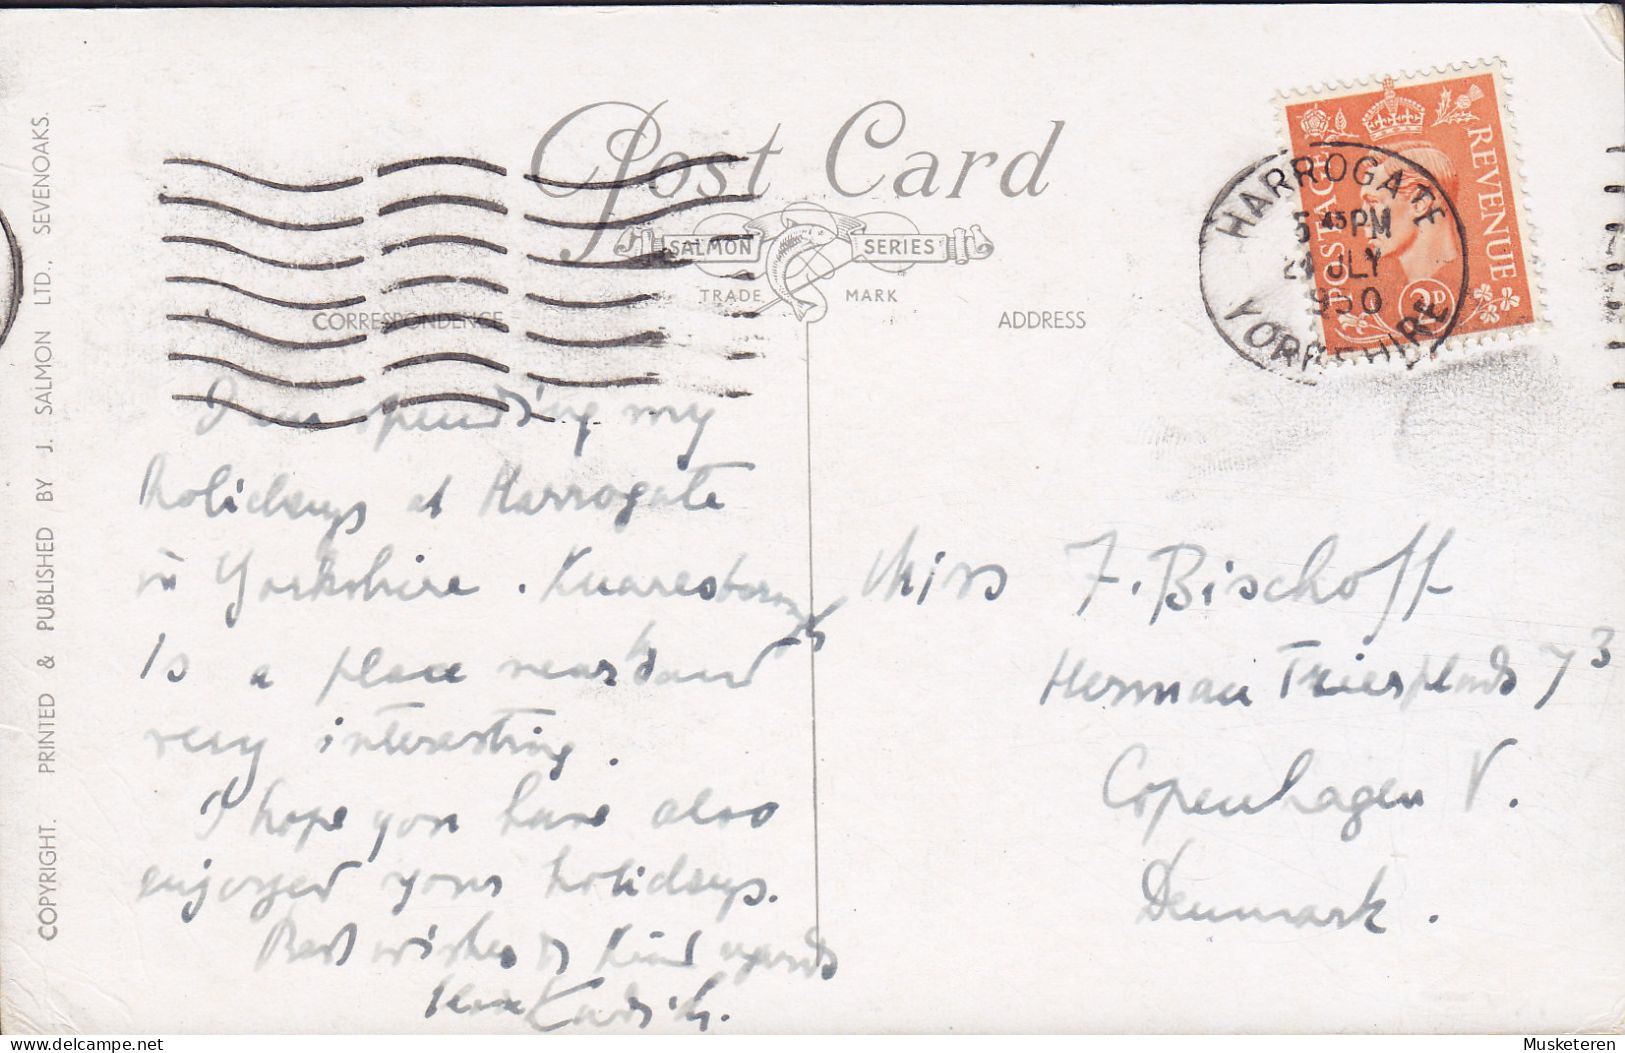 Post Card
SALMON SERIES
TRADE MARK
CORRESPONDENCE
ADDRESS
COPYRIGHT. PRINTED & PUBLISHED BY J. SALMON LTD., SEVENOAKS.
POSTAGE REVENUE
2D
HARROGATE
5 45 PM
JLY
1950
YORKSHIRE
I am spending my
holidays at Harrogate
in Yorkshire. Knaresborough
is a place near and
very interesting.
I hope you have also
enjoyed your holidays.
Best wishes & kind regards
Miss F. Bischoff
Herman Triersplads 7 3
Copenhagen V.
Denmark.
Musketeren